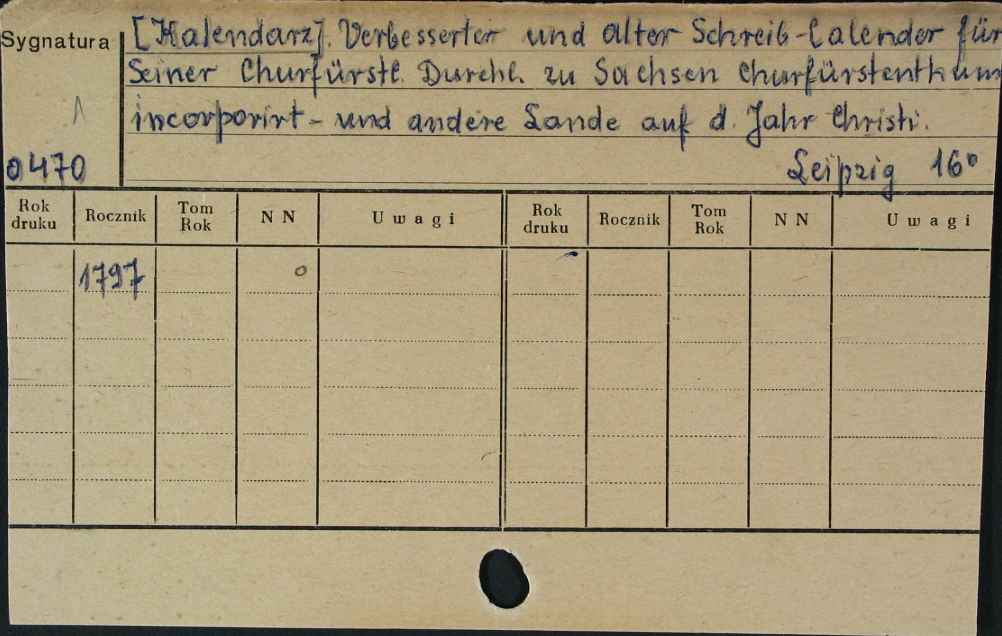 Sygnatura
[Kalendarz]. Verbesserter und alter Schreib-Calender für
Seiner Churfürstl. Durchl. zu Sachsen Churfürstenthum
incorporirt- und andere Lande auf d. Jahr Christi.
0470
Leipzig 16°
Rok druku Rocznik Tom Rok N N Uwagi Rok druku Rocznik Tom Rok N N Uwagi
1797